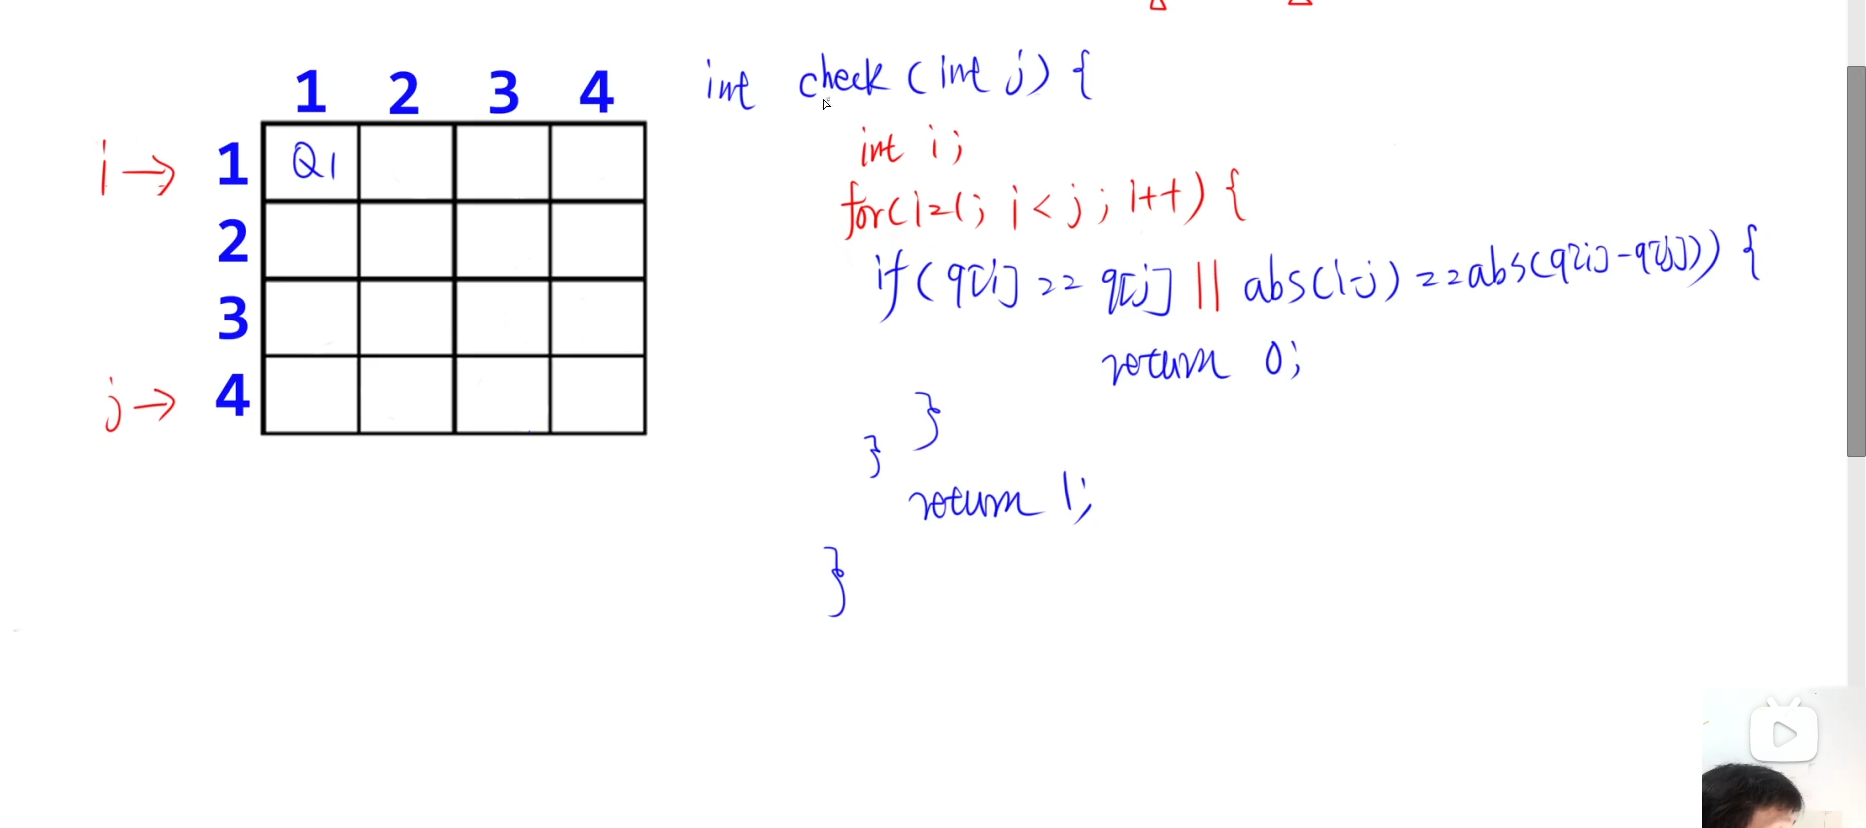 1 2 3 4
int check (int j) {
i → 1 Q1
int i;
for(i=1; i<j; i++) {
2
if (q[i] == q[j] || abs(i-j) == abs(q[i]-q[j])) {
3
return 0;
j → 4
}
}
return 1;
}